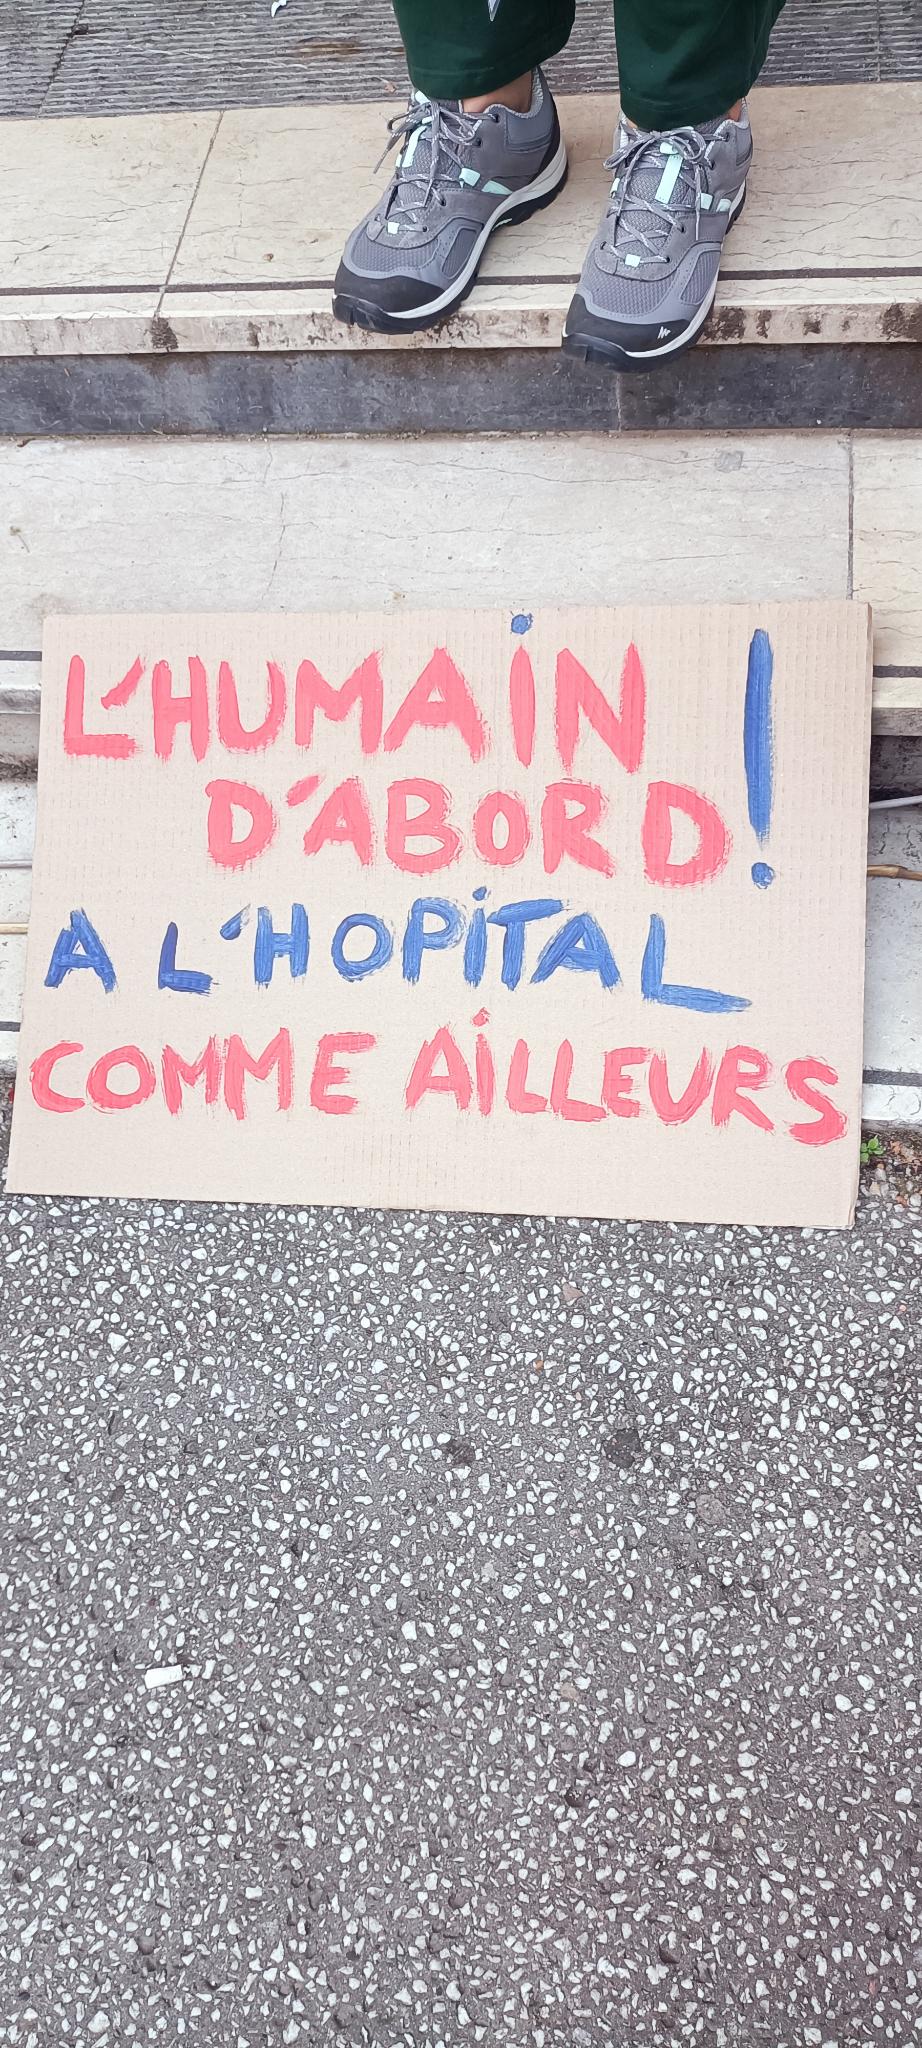 L'HUMAiN
D'ABORD!
A L'HOPiTAL
COMME AiLLEURS